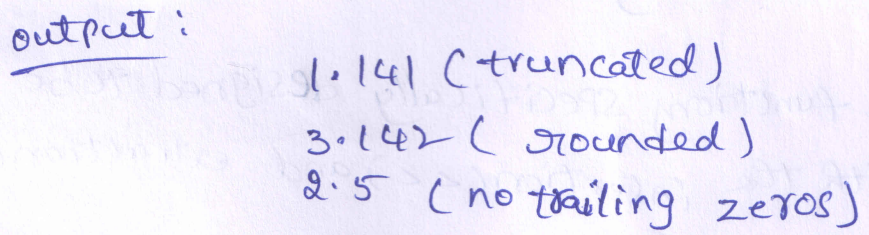 output :
1.141 (truncated)
3.142 ( rounded)
2.5 (no trailing zeros)